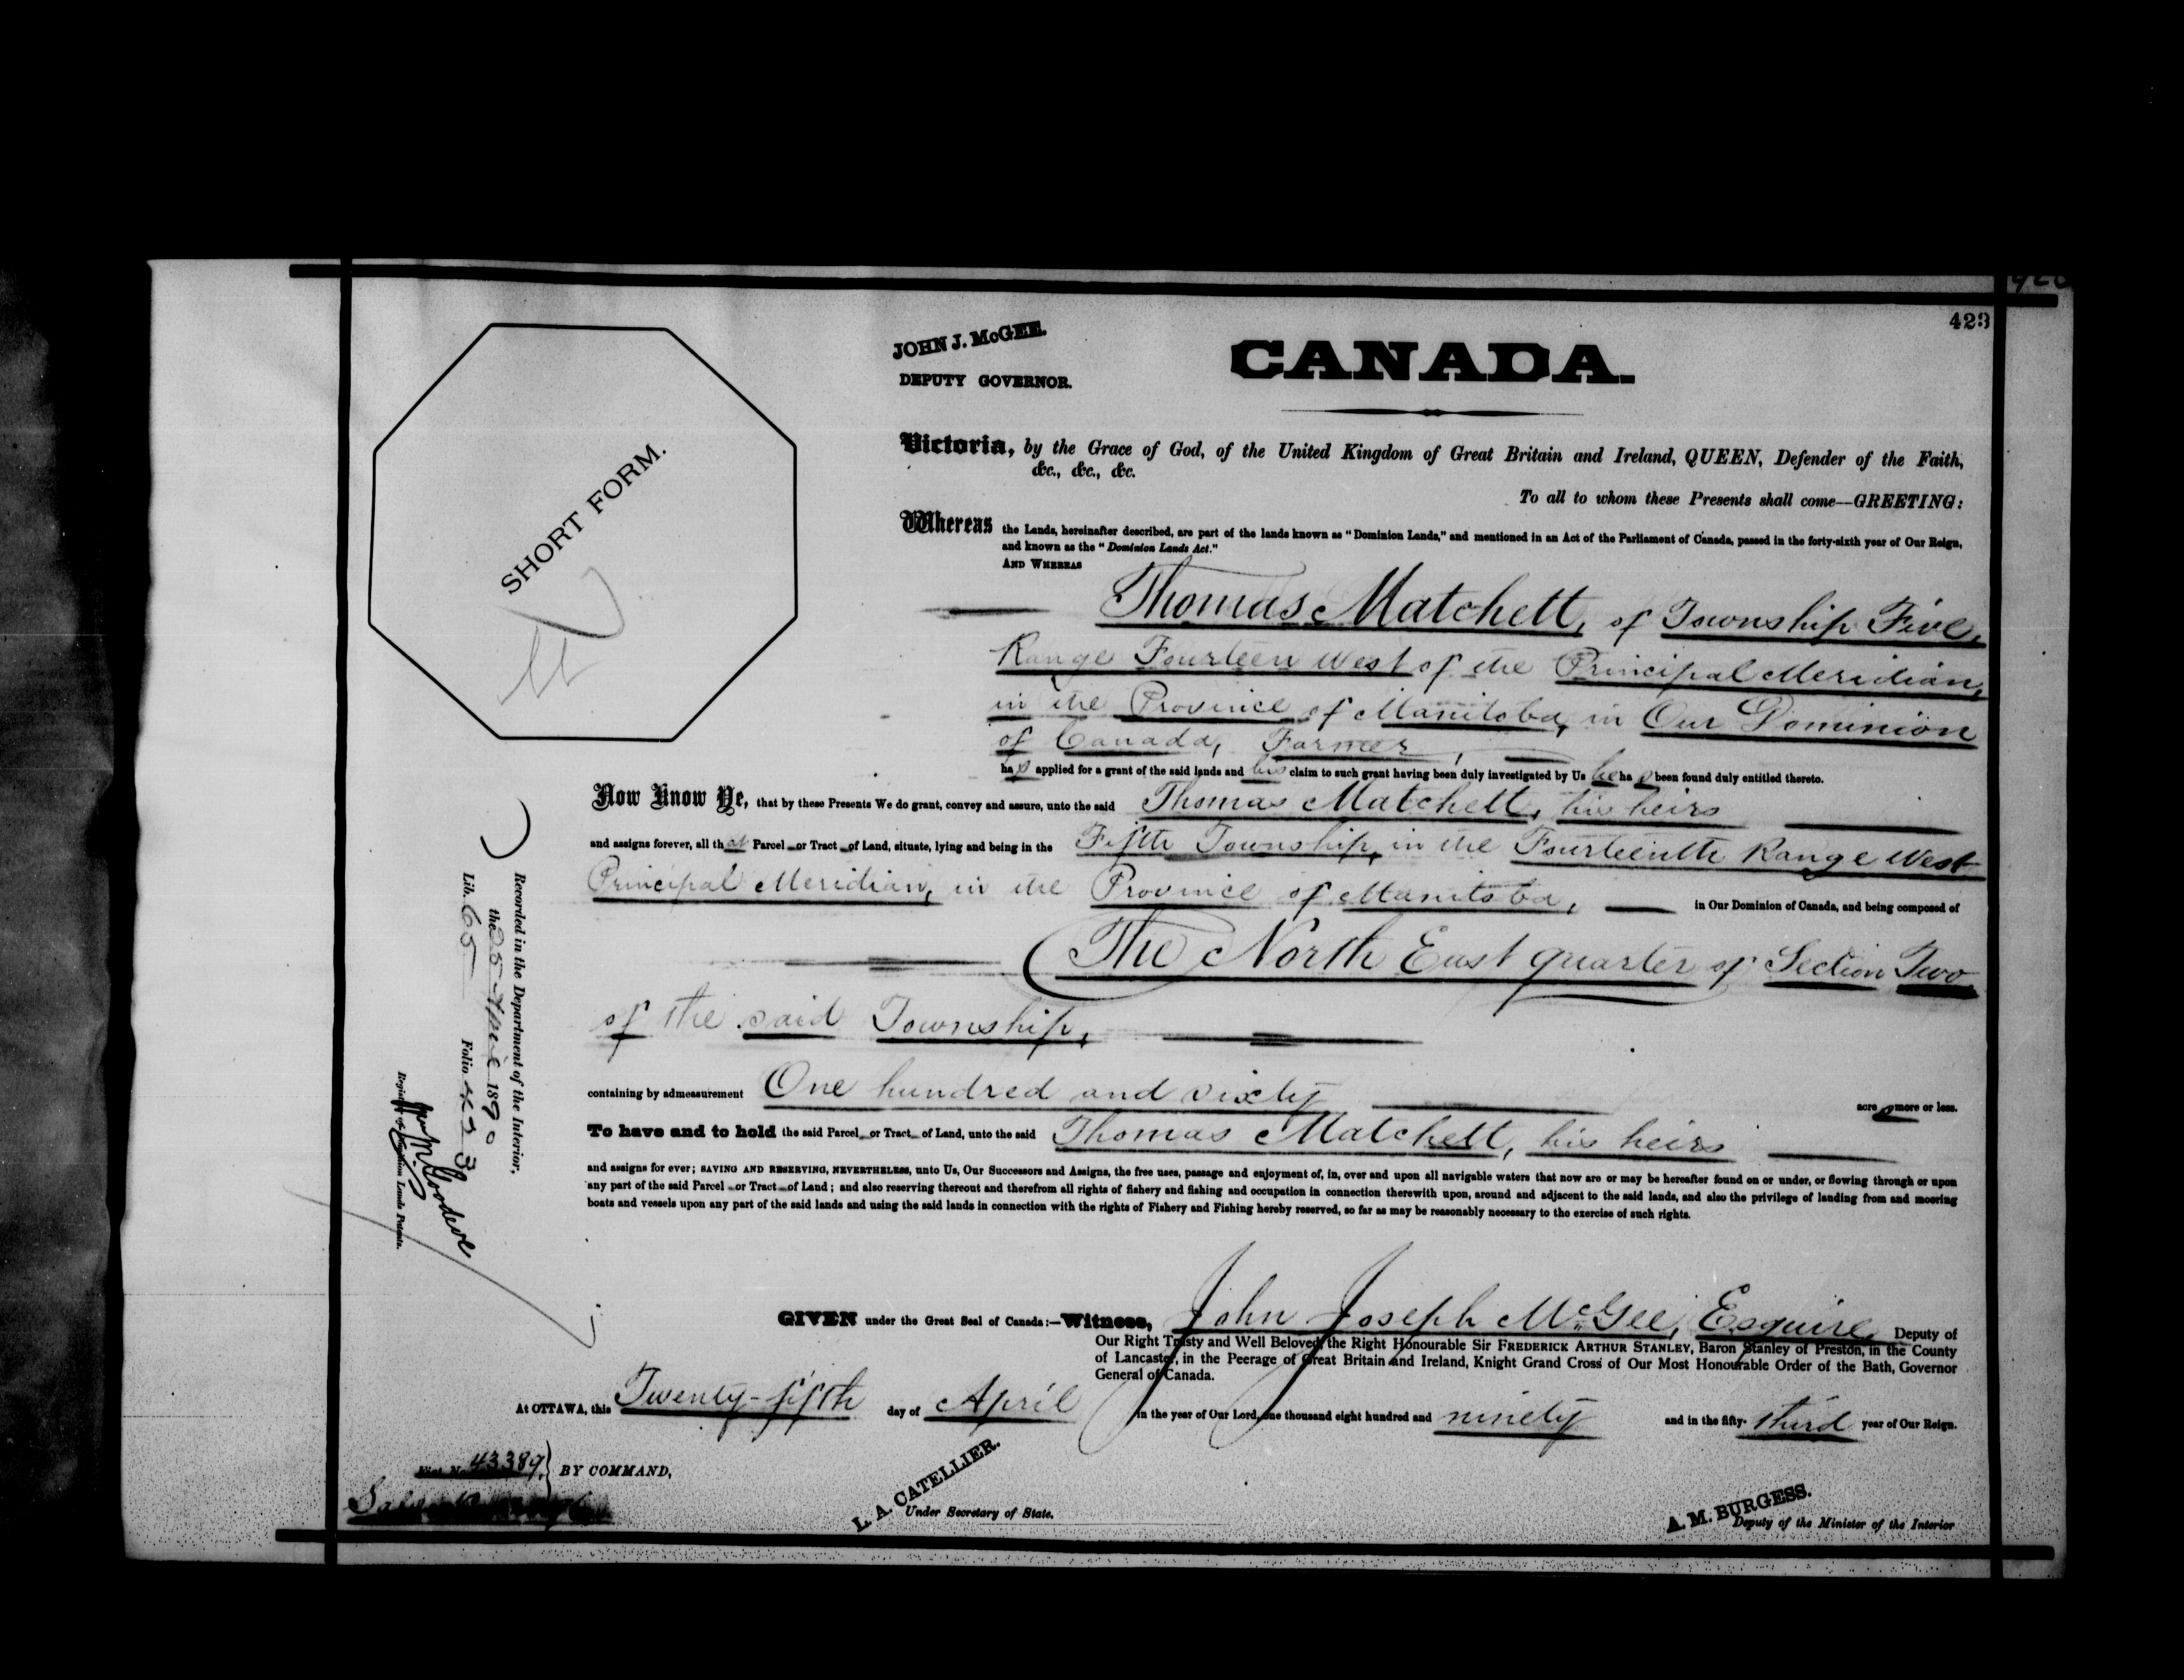 423
JOHN J. McGEE.
DEPUTY GOVERNOR.
CANADA.
SHORT FORM.
Victoria, by the Grace of God, of the United Kingdom of Great Britain and Ireland, QUEEN, Defender of the Faith,
&c., &c., &c.
To all to whom these Presents shall come—GREETING:
Whereas the Lands, hereinafter described, are part of the lands known as "Dominion Lands," and mentioned in an Act of the Parliament of Canada, passed in the forty-sixth year of Our Reign,
and known as the "Dominion Lands Act."
AND WHEREAS
Thomas Matchett, of Township Five,
Range Fourteen West of the Principal Meridian,
in the Province of Manitoba, in Our Dominion
of Canada, Farmer,
has applied for a grant of the said lands and his claim to such grant having been duly investigated by Us he has been found duly entitled thereto.
Now Know Ye, that by these Presents We do grant, convey and assure, unto the said Thomas Matchett, his heirs
and assigns forever, all that Parcel or Tract of Land, situate, lying and being in the Fifth Township, in the Fourteenth Range West
Principal Meridian, in the Province of Manitoba, in Our Dominion of Canada, and being composed of
The North East quarter of Section Two
of the said Township,
containing by admeasurement One hundred and sixty acres more or less.
To have and to hold the said Parcel or Tract of Land, unto the said Thomas Matchett, his heirs
and assigns for ever; SAVING AND RESERVING, NEVERTHELESS, unto Us, Our Successors and Assigns, the free uses, passage and enjoyment of, in, over and upon all navigable waters that now are or may be hereafter found on or under, or flowing through or upon
any part of the said Parcel or Tract of Land; and also reserving thereout and therefrom all rights of fishery and fishing and occupation in connection therewith upon, around and adjacent to the said lands, and also the privilege of landing from and mooring
boats and vessels upon any part of the said lands and using the said lands in connection with the rights of Fishery and Fishing hereby reserved, so far as may be reasonably necessary to the exercise of such rights.
GIVEN under the Great Seal of Canada:—Witness, John Joseph McGee, Esquire, Deputy of
Our Right Trusty and Well Beloved, the Right Honourable Sir FREDERICK ARTHUR STANLEY, Baron Stanley of Preston, in the County
of Lancaster, in the Peerage of Great Britain and Ireland, Knight Grand Cross of Our Most Honourable Order of the Bath, Governor
General of Canada.
At OTTAWA, this Twenty-fifth day of April in the year of Our Lord, one thousand eight hundred and ninety and in the fifty-third year of Our Reign.
43389 } BY COMMAND,
L. A. CATELLIER.
Under Secretary of State.
A. M. BURGESS.
Deputy of the Minister of the Interior
Recorded in the Department of the Interior,
the 25 April 1890
Lib. 65 Folio 423
Lands Patents.